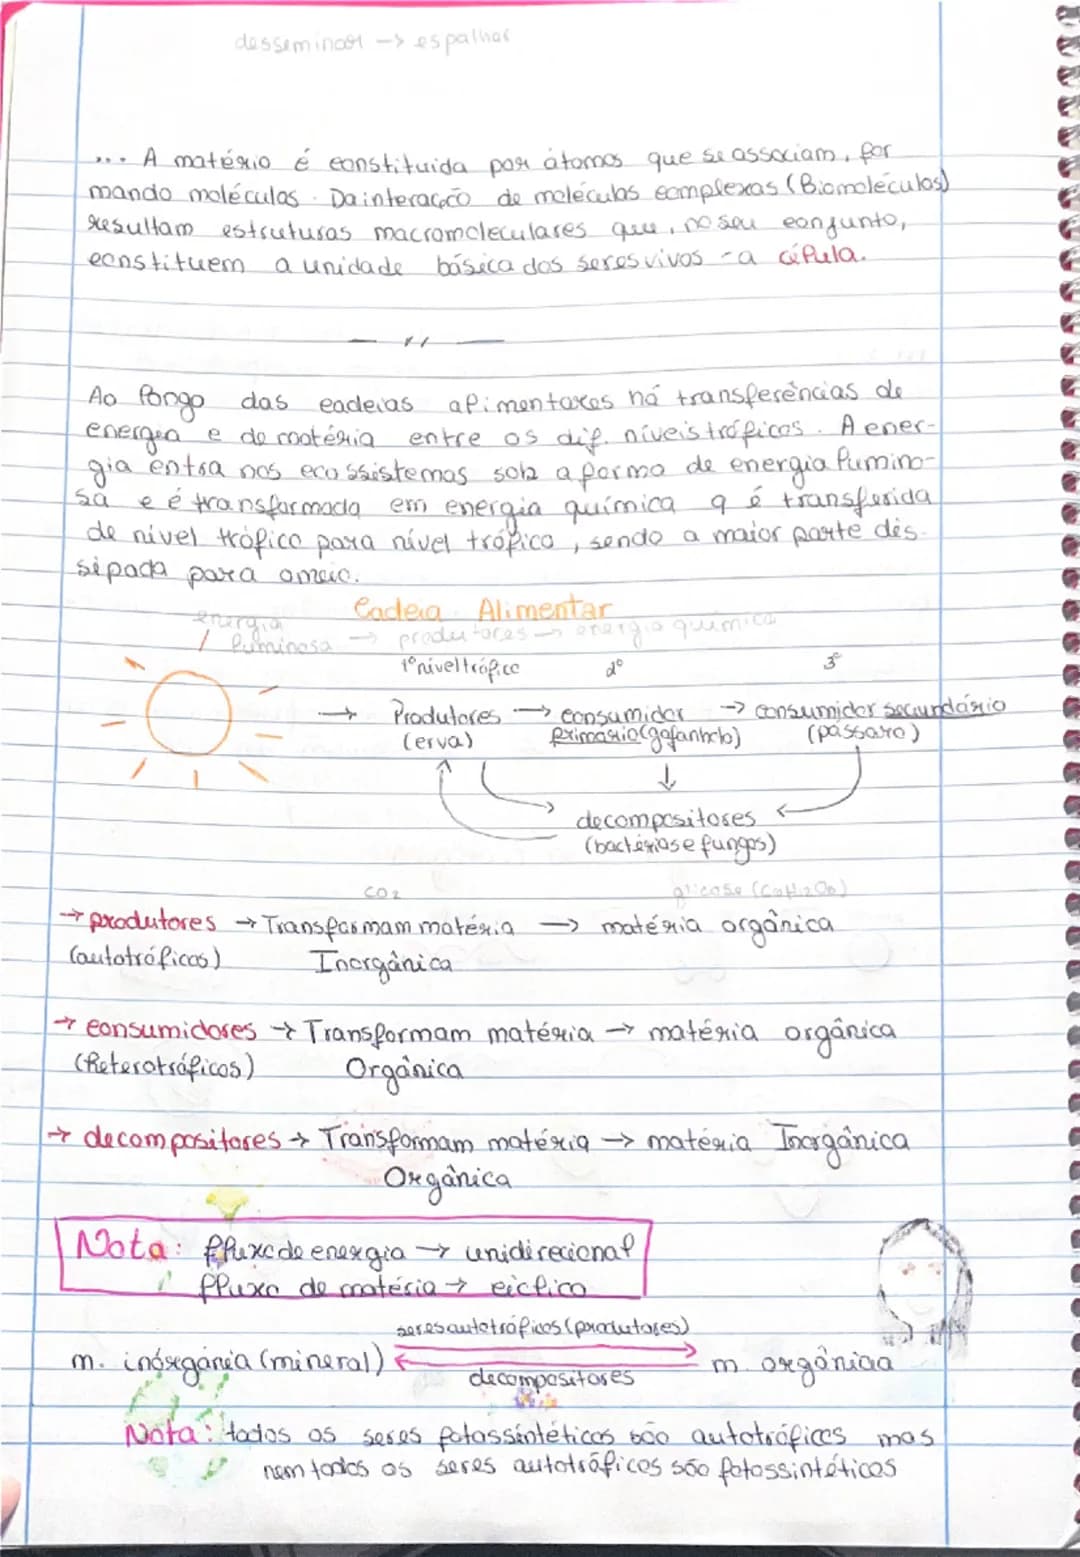 desseminar → espalhar
... A matéria é constituida por átomos que se associam, for
mando moléculas. Da interacção de moléculas complexas (Biomoléculas)
resultam estruturas macromoleculares que, no seu conjunto,
constituem a unidade básica dos seres vivos - a célula.
— " —
Ao longo das cadeias alimentares há transferências de
energia e de matéria entre os dif. níveis tróficos. A ener-
gia entra nos ecossistemas sob a forma de energia lumino-
sa e é transformada em energia química q é transferida
de nível trófico para nível trófico, sendo a maior parte dis-
sipada para o meio.
Cadeia Alimentar
energia
luminosa → produtores → energia química
1º nível trófico 2º 3º
→ Produtores → consumidor → consumidor secundário
(erva) primário (gafanhoto) (pássaro)
↓
decompositores
(bactérias e fungos)
CO2 glicose (C6H12O6)
→ produtores → Transformam matéria → matéria orgânica
(autotróficos) Inorgânica
→ consumidores → Transformam matéria → matéria orgânica
(heterotróficos) Orgânica
→ decompositores → Transformam matéria → matéria Inorgânica
Orgânica
Nota: fluxo de energia → unidirecional
fluxo de matéria → cíclico
seres autotróficos (produtores)
m. inórgania (mineral) m. orgâniaa
decompositores
Nota: todos os seres fotossintéticos são autotróficos mas
nem todos os seres autotróficos são fotossintéticos